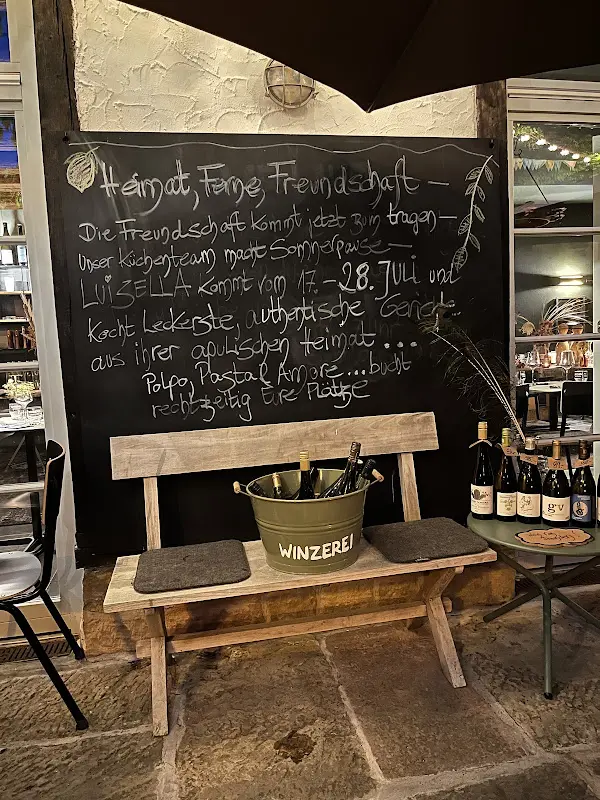 Heimat, Ferne, Freundschaft —
Die Freundschaft kommt jetzt zum tragen —
Unser Küchenteam macht Sommerpause —
LUISELLA kommt vom 17. - 28. JULI und
kocht Leckerste, authentische Gerichte
aus ihrer apulischen Heimat ...
Polpo, Pasta & Amore ... bucht
rechtzeitig Eure Plätze
WINZEREI
gv